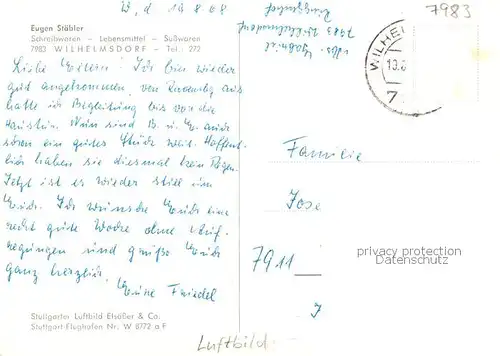 W, d 13 8 08
7983
Eugen Stäbler
Schreibwaren – Lebensmittel – Süßwaren
7983 WILHELMSDORF – Tel. 272
7983 Wilhelmsdorf
WILHE
13.8
7
Liebe Eltern! Ich bin wieder
gut angekommen, von aus
hatte ich Begleitung bis vor die
Haustür. Nun sind B. u. E. auch
schon ein gutes Stück weit. Hoffent-
lich haben sie diesmal kein Regen.
Jetzt ist es wieder still um
Euch. Ich wünsche Euch eine
recht gute Woche ohne Auf-
regungen und grüße Euch
ganz herzlich.
Eure Friedel
Familie
Jose
7911
privacy protection
Datenschutz
Stuttgarter Luftbild Elsäßer & Co.
Stuttgart-Flughafen Nr. W 8772 a F
Luftbild